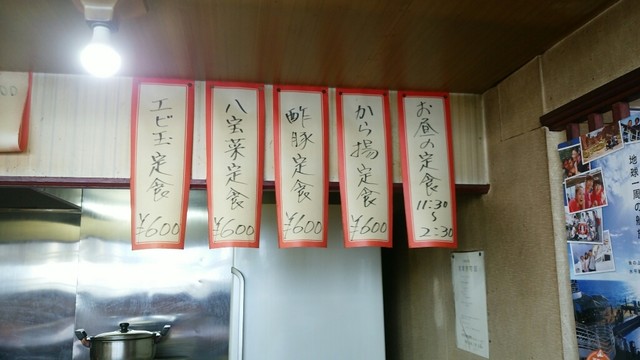 お昼の定食
11:30
~
2:30
から揚定食
¥600
酢豚定食
¥600
八宝菜定食
¥600
エビ玉定食
¥600
地球一周の